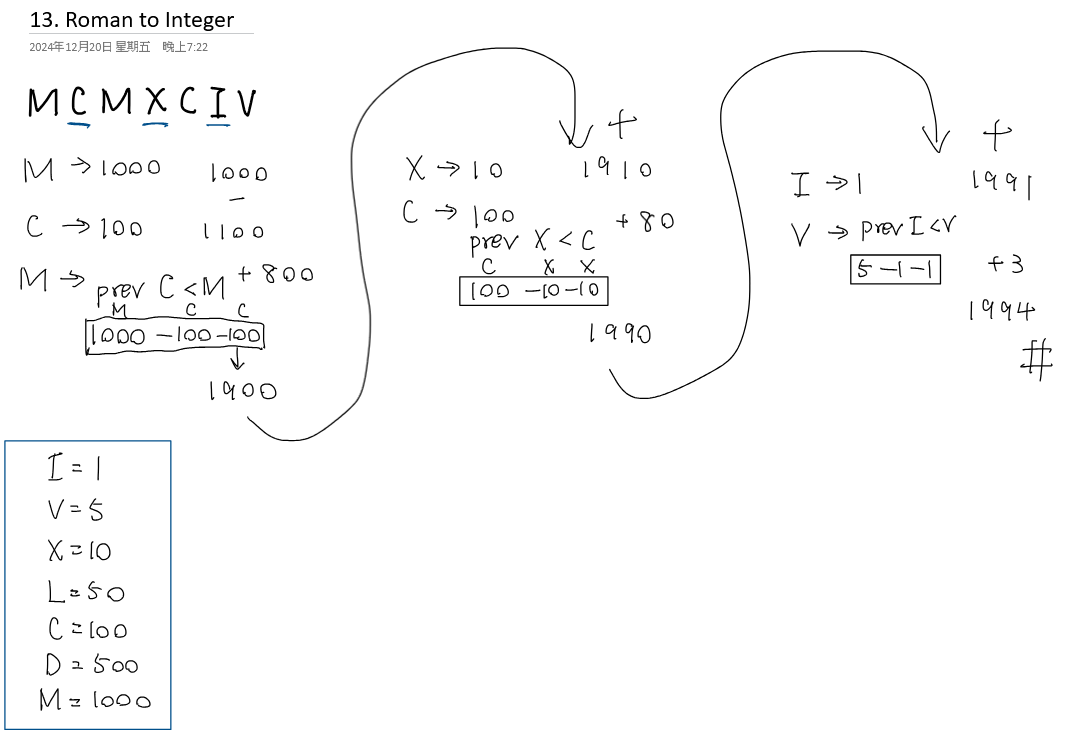 13. Roman to Integer
2024年12月20日 星期五 晚上7:22
M C M X C I V
M → 1000 1000
C → 100 1100
M → prev C < M +800
M C C
1000 - 100 - 100
1900
+
X → 10 1910
C → 100 +80
prev X < C
C X X
100 - 10 - 10
1990
+
I → 1 1991
V → prev I < V
5 - 1 - 1 +3
1994
#
I = 1
V = 5
X = 10
L = 50
C = 100
D = 500
M = 1000